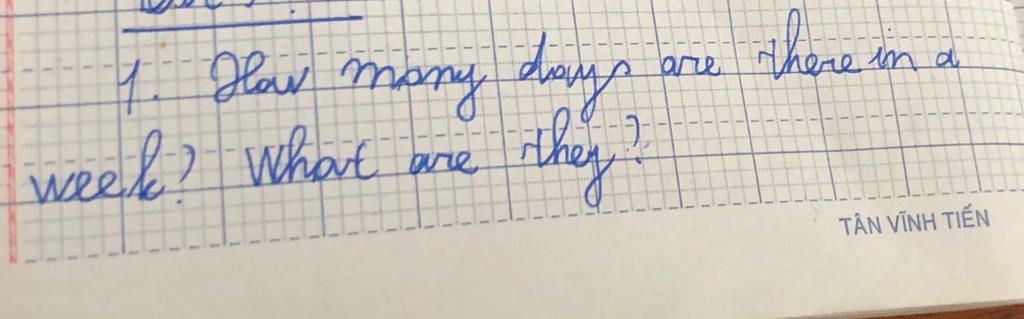 1. How many days are there in a
week? What are they?
TÂN VĨNH TIẾN